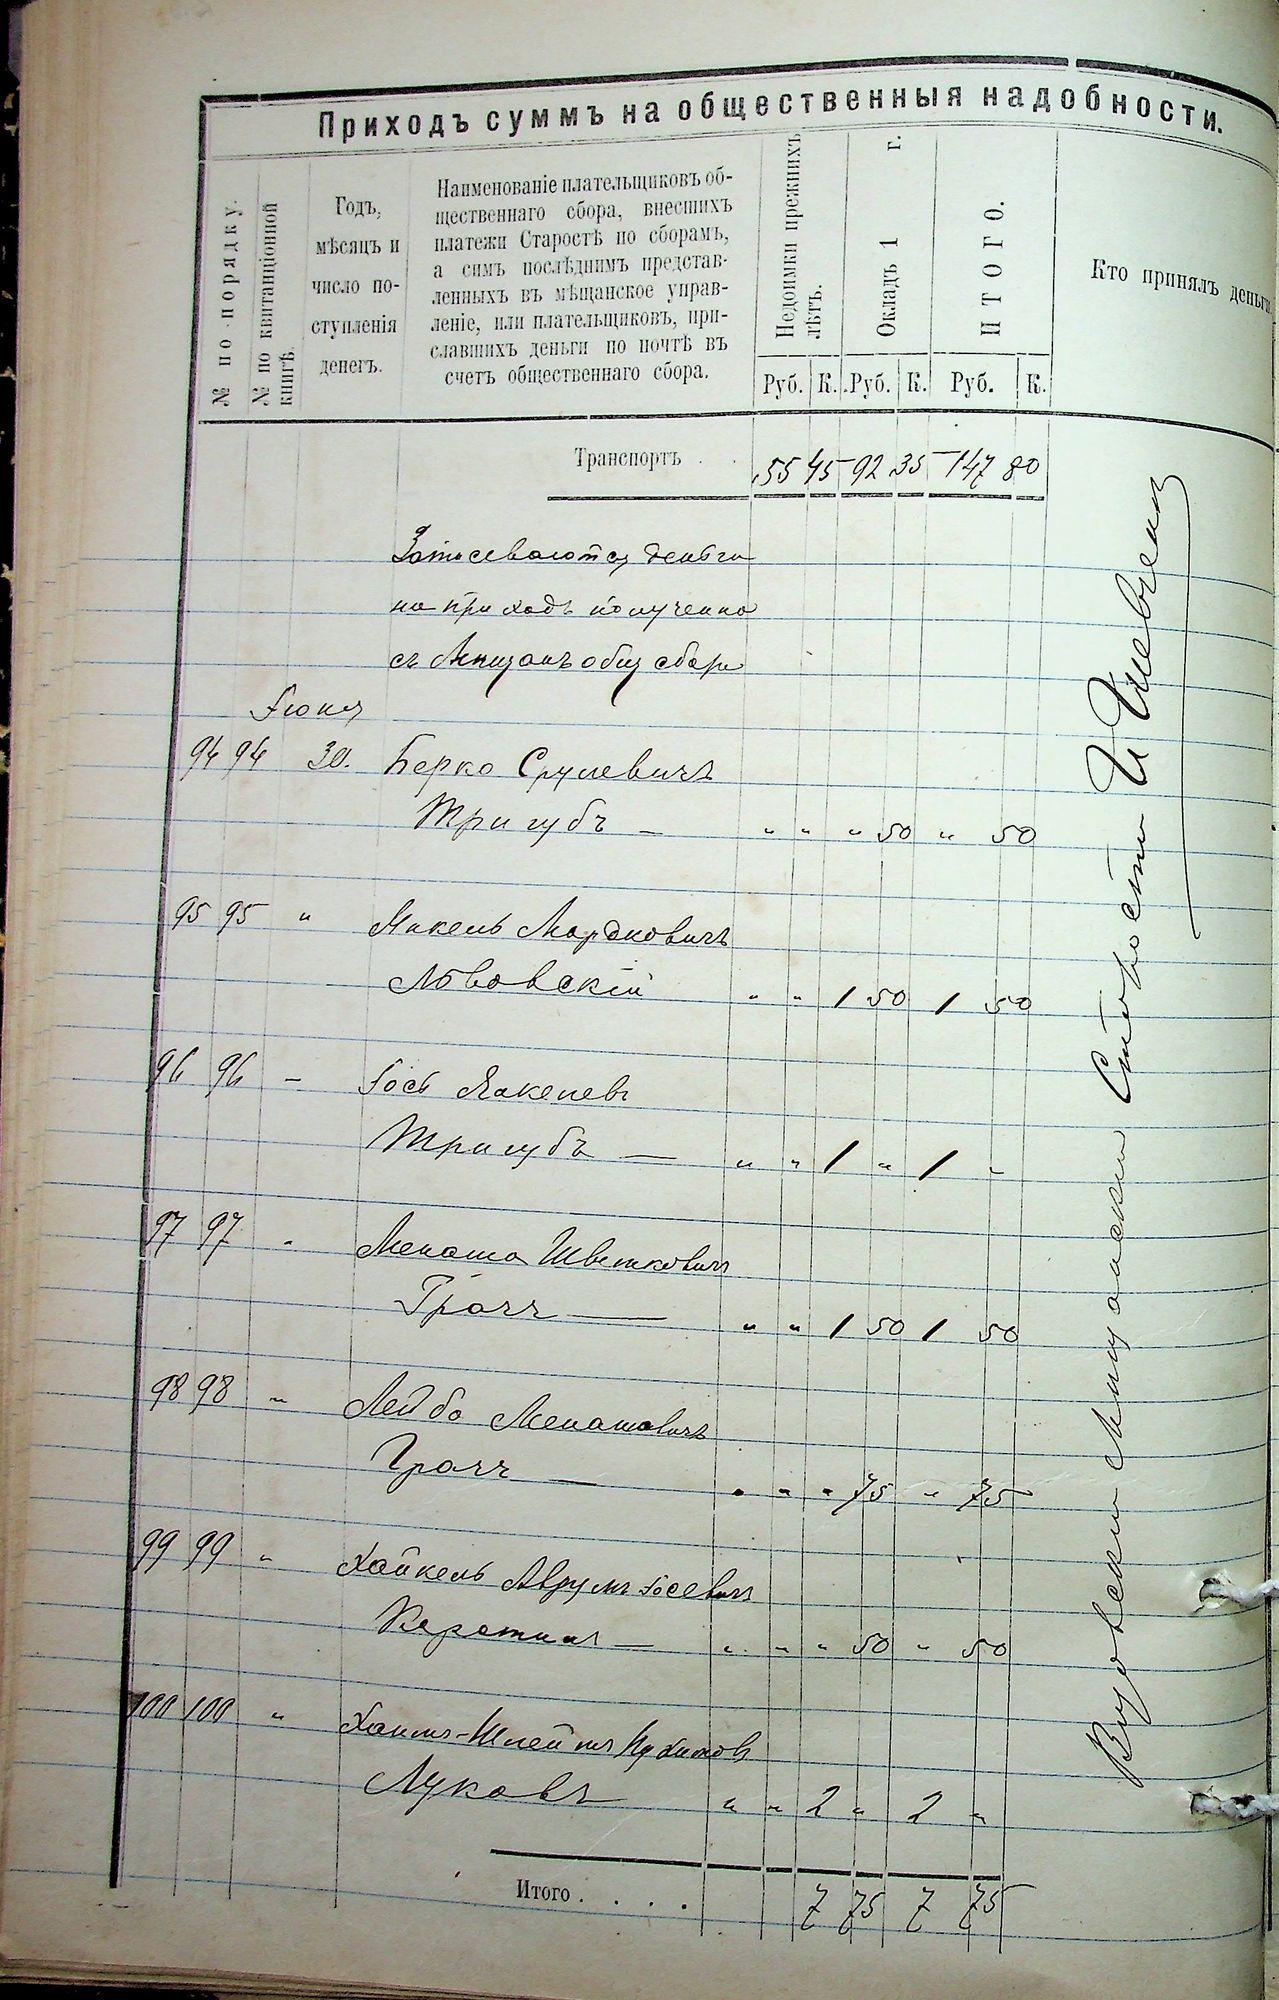 Приходъ суммъ на общественныя надобности.
№ по порядку.
№ по квитанціонной книгѣ.
Годъ,
мѣсяцъ и
число по-
ступленія
денегъ.
Наименованіе плательщиковъ об-
щественнаго сбора, внесшихъ
платежи Старостѣ по сборамъ,
а симъ послѣднимъ представ-
ленныхъ въ мѣщанское управ-
леніе, или плательщиковъ, при-
славшихъ деньги по почтѣ въ
счетъ общественнаго сбора.
Недоимки прежнихъ лѣтъ.
Окладъ 1 г.
ИТОГО.
Кто принялъ деньги.
Руб. К. Руб. К. Руб. К.
Транспортъ . . 55 45 92 35 147 80
Записеваются деньги
на приходъ полученно
съ Мещанъ общ сбора
Іюня
94 94 30. Берко Срулевичъ
Тригубъ — " " " 50 " 50
95 95 " Янкель Мордковичъ
Львовскій " " 1 50 1 50
96 96 – Іось Янкелевъ
Тригубъ — " " 1 " 1 "
97 97 " Менаша
Грачъ — " " 1 50 1 50
98 98 " Лейба Менашовичъ
Грачъ — " " " 75 " 75
99 99 " Хайкель Аврумъ Іосевичъ
— " " " 50 " 50
100 100 " Хаимъ-Шлейма
Луковъ " " 2 " 2 "
Итого . . . . 7 75 7 75
Мищански Старосты